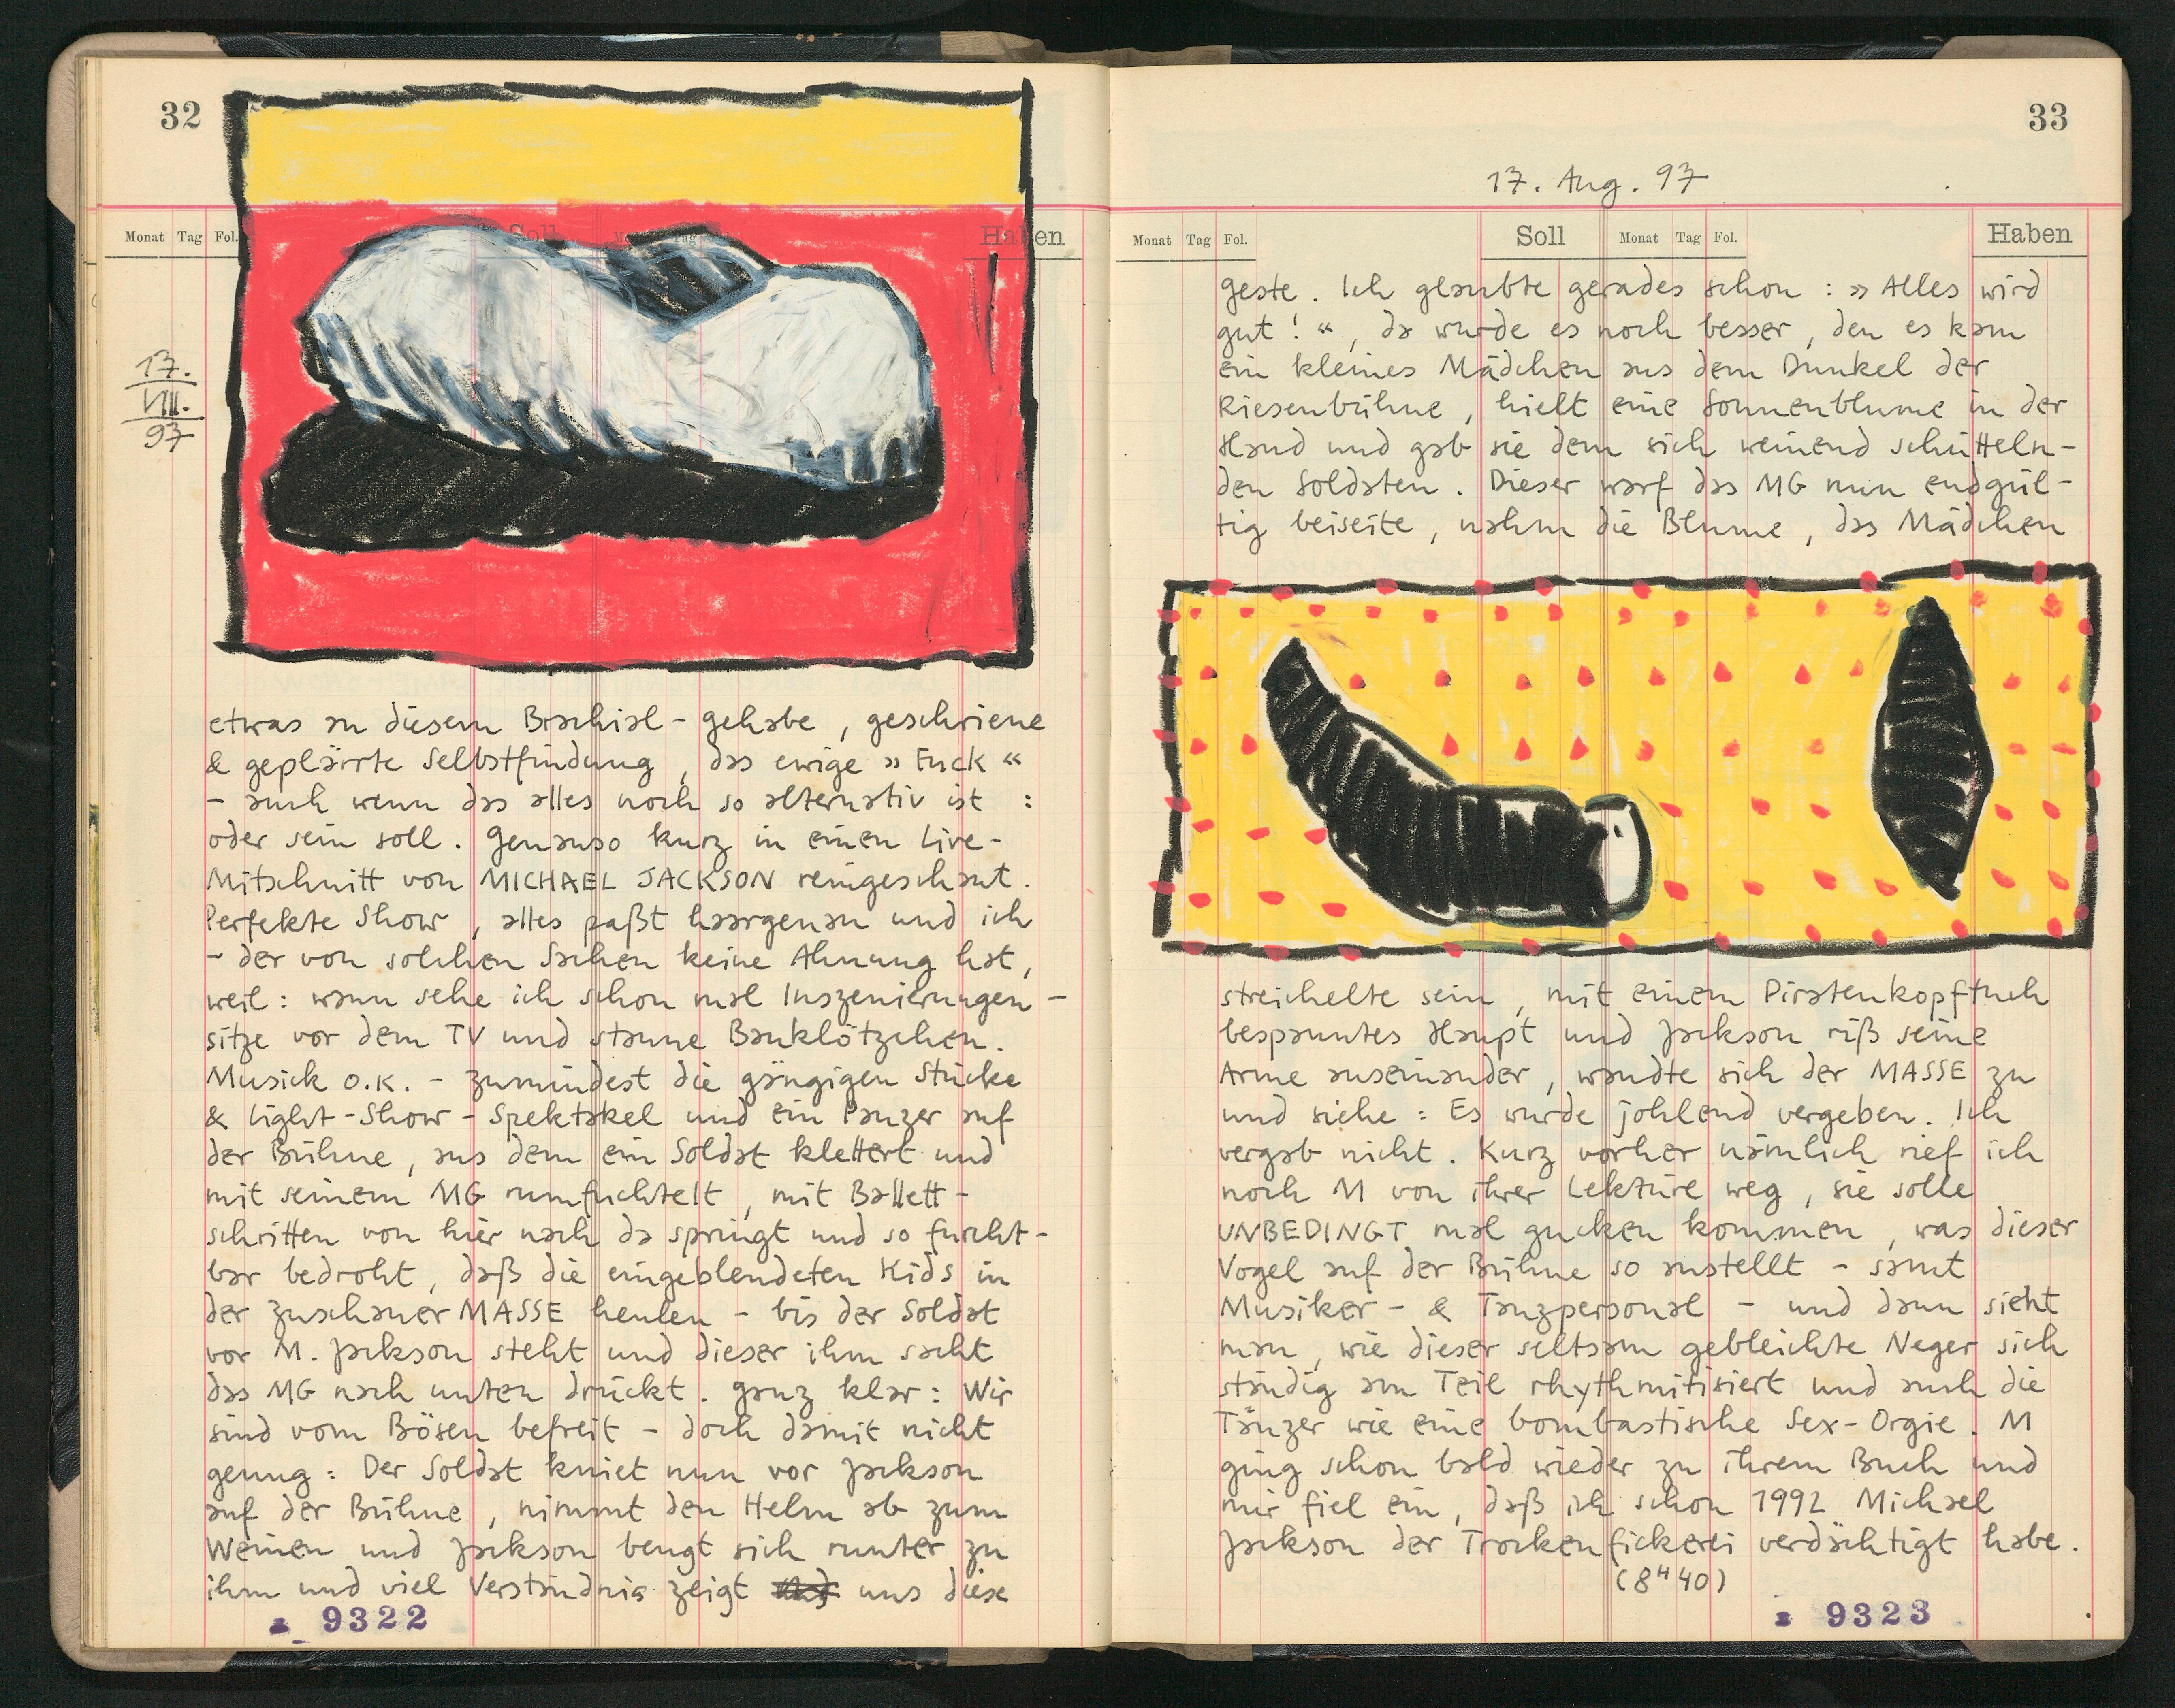 32
Monat Tag Fol. Soll Monat Tag Haben
17.
VIII.
97
etwas an diesem Brachial-gehabe, geschriene
& geplärrte Selbstfindung, das ewige »Fuck«
- auch wenn das alles noch so alternativ ist :
oder sein soll. Genauso kurz in einen Live-
Mitschnitt von MICHAEL JACKSON reingeschaut.
Perfekte Show, alles paßt haargenau und ich
- der von solchen Sachen keine Ahnung hat,
weil: wann sehe ich schon mal Inszenierungen -
sitze vor dem TV und staune Bauklötzchen.
Musick o.k. - zumindest die gängigen Stücke
& Light-Show-Spektakel und ein Panzer auf
der Bühne, aus dem ein Soldat klettert und
mit seinem MG rumfuchtelt, mit Ballett-
schritten von hier nach da springt und so furcht-
bar bedroht, daß die eingeblendeten Kids in
der Zuschauer MASSE heulen - bis der Soldat
vor M. Jackson steht und dieser ihm sacht
das MG nach unten drückt. Ganz klar: Wir
sind vom Bösen befreit - doch damit nicht
genug: Der Soldat kniet nun vor Jackson
auf der Bühne, nimmt den Helm ab zum
Weinen und Jackson beugt sich runter zu
ihm und viel Verständnis zeigt uns diese
9322
33
17. Aug. 97
Monat Tag Fol. Soll Monat Tag Fol. Haben
geste. Ich glaubte gerades schon : »Alles wird
gut!«, da wurde es noch besser, den es kam
ein kleines Mädchen aus dem Dunkel der
Riesenbühne, hielt eine Sonnenblume in der
Hand und gab sie dem sich weinend schütteln-
den Soldaten. Dieser warf das MG nun endgül-
tig beiseite, nahm die Blume, das Mädchen
streichelte sein, mit einem Piratenkopftuch
bespanntes Haupt und Jackson riß seine
Arme auseinander, wandte sich der MASSE zu
und siehe: Es wurde johlend vergeben. Ich
vergab nicht. Kurz vorher nämlich rief ich
noch M von ihrer Lektüre weg, sie solle
UNBEDINGT mal gucken kommen, was dieser
Vogel auf der Bühne so anstellt - samt
Musiker- & Tanzpersonal - und dann sieht
man, wie dieser seltsam gebleichte Neger sich
ständig am Teil rhythmitisiert und auch die
Tänzer wie eine bombastische Sex-Orgie. M
ging schon bald wieder zu ihrem Buch und
mir fiel ein, daß ich schon 1992 Michael
Jackson der Trockenfickerei verdächtigt habe.
(8H40)
9323